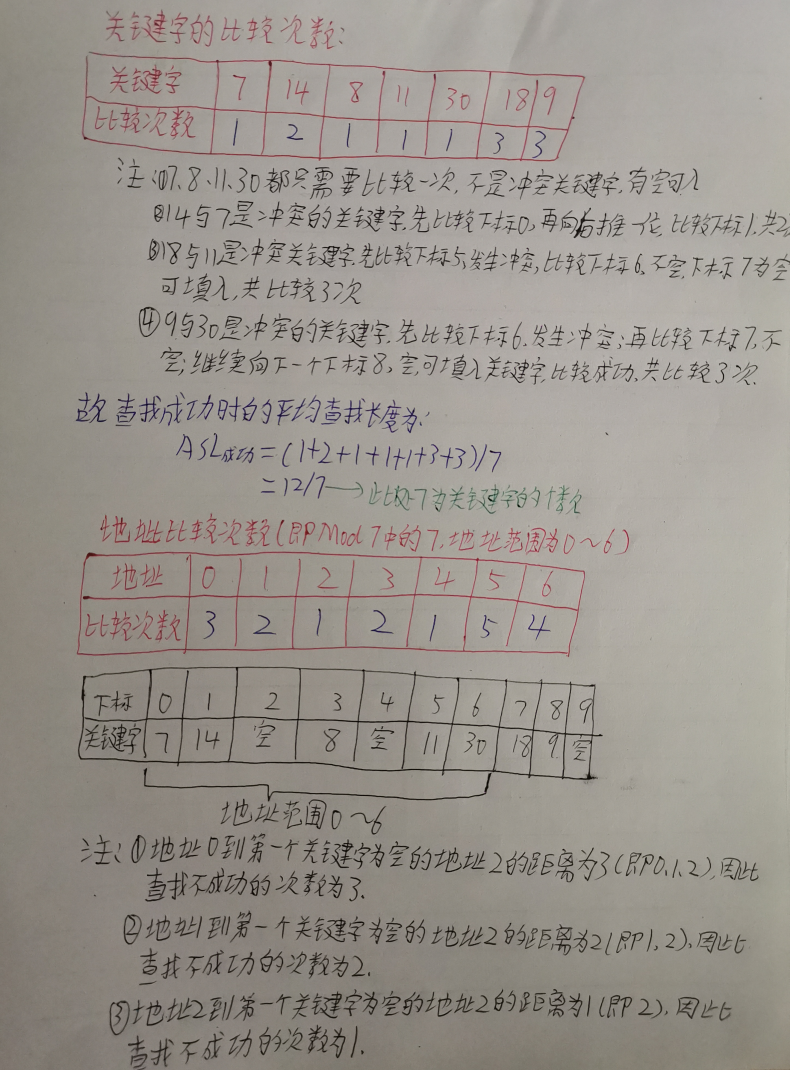 关键字的比较次数:
关键字 7 14 8 11 30 18 9
比较次数 1 2 1 1 1 3 3
注:①7、8、11、30都只需要比较一次,不是冲突关键字,有空可入
②14与7是冲突的关键字,先比较下标0,再向后推一位,比较下标1,共2
③18与11是冲突关键字,先比较下标5,发生冲突,比较下标6,不空,下标7为空
可填入,共比较3次
④9与30是冲突的关键字,先比较下标6,发生冲突;再比较下标7,不
空;继续向下一个下标8,空,可填入关键字,比较成功,共比较3次.
故查找成功时的平均查找长度为:
ASL成功=(1+2+1+1+1+3+3)/7
=12/7→此处7为关键字的个数
地址比较次数(即Mod 7中的7,地址范围为0~6)
地址 0 1 2 3 4 5 6
比较次数 3 2 1 2 1 5 4
下标 0 1 2 3 4 5 6 7 8 9
关键字 7 14 空 8 空 11 30 18 9 空
地址范围0~6
注:①地址0到第一个关键字为空的地址2的距离为3(即0,1,2),因此
查找不成功的次数为3.
②地址1到第一个关键字为空的地址2的距离为2(即1,2),因此
查找不成功的次数为2.
③地址2到第一个关键字为空的地址2的距离为1(即2),因此
查找不成功的次数为1.